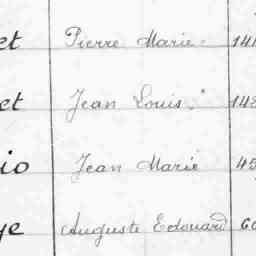 et Pierre Marie 141
et Jean Louis 148
io Jean Marie 45
ye Auguste Edouard 60